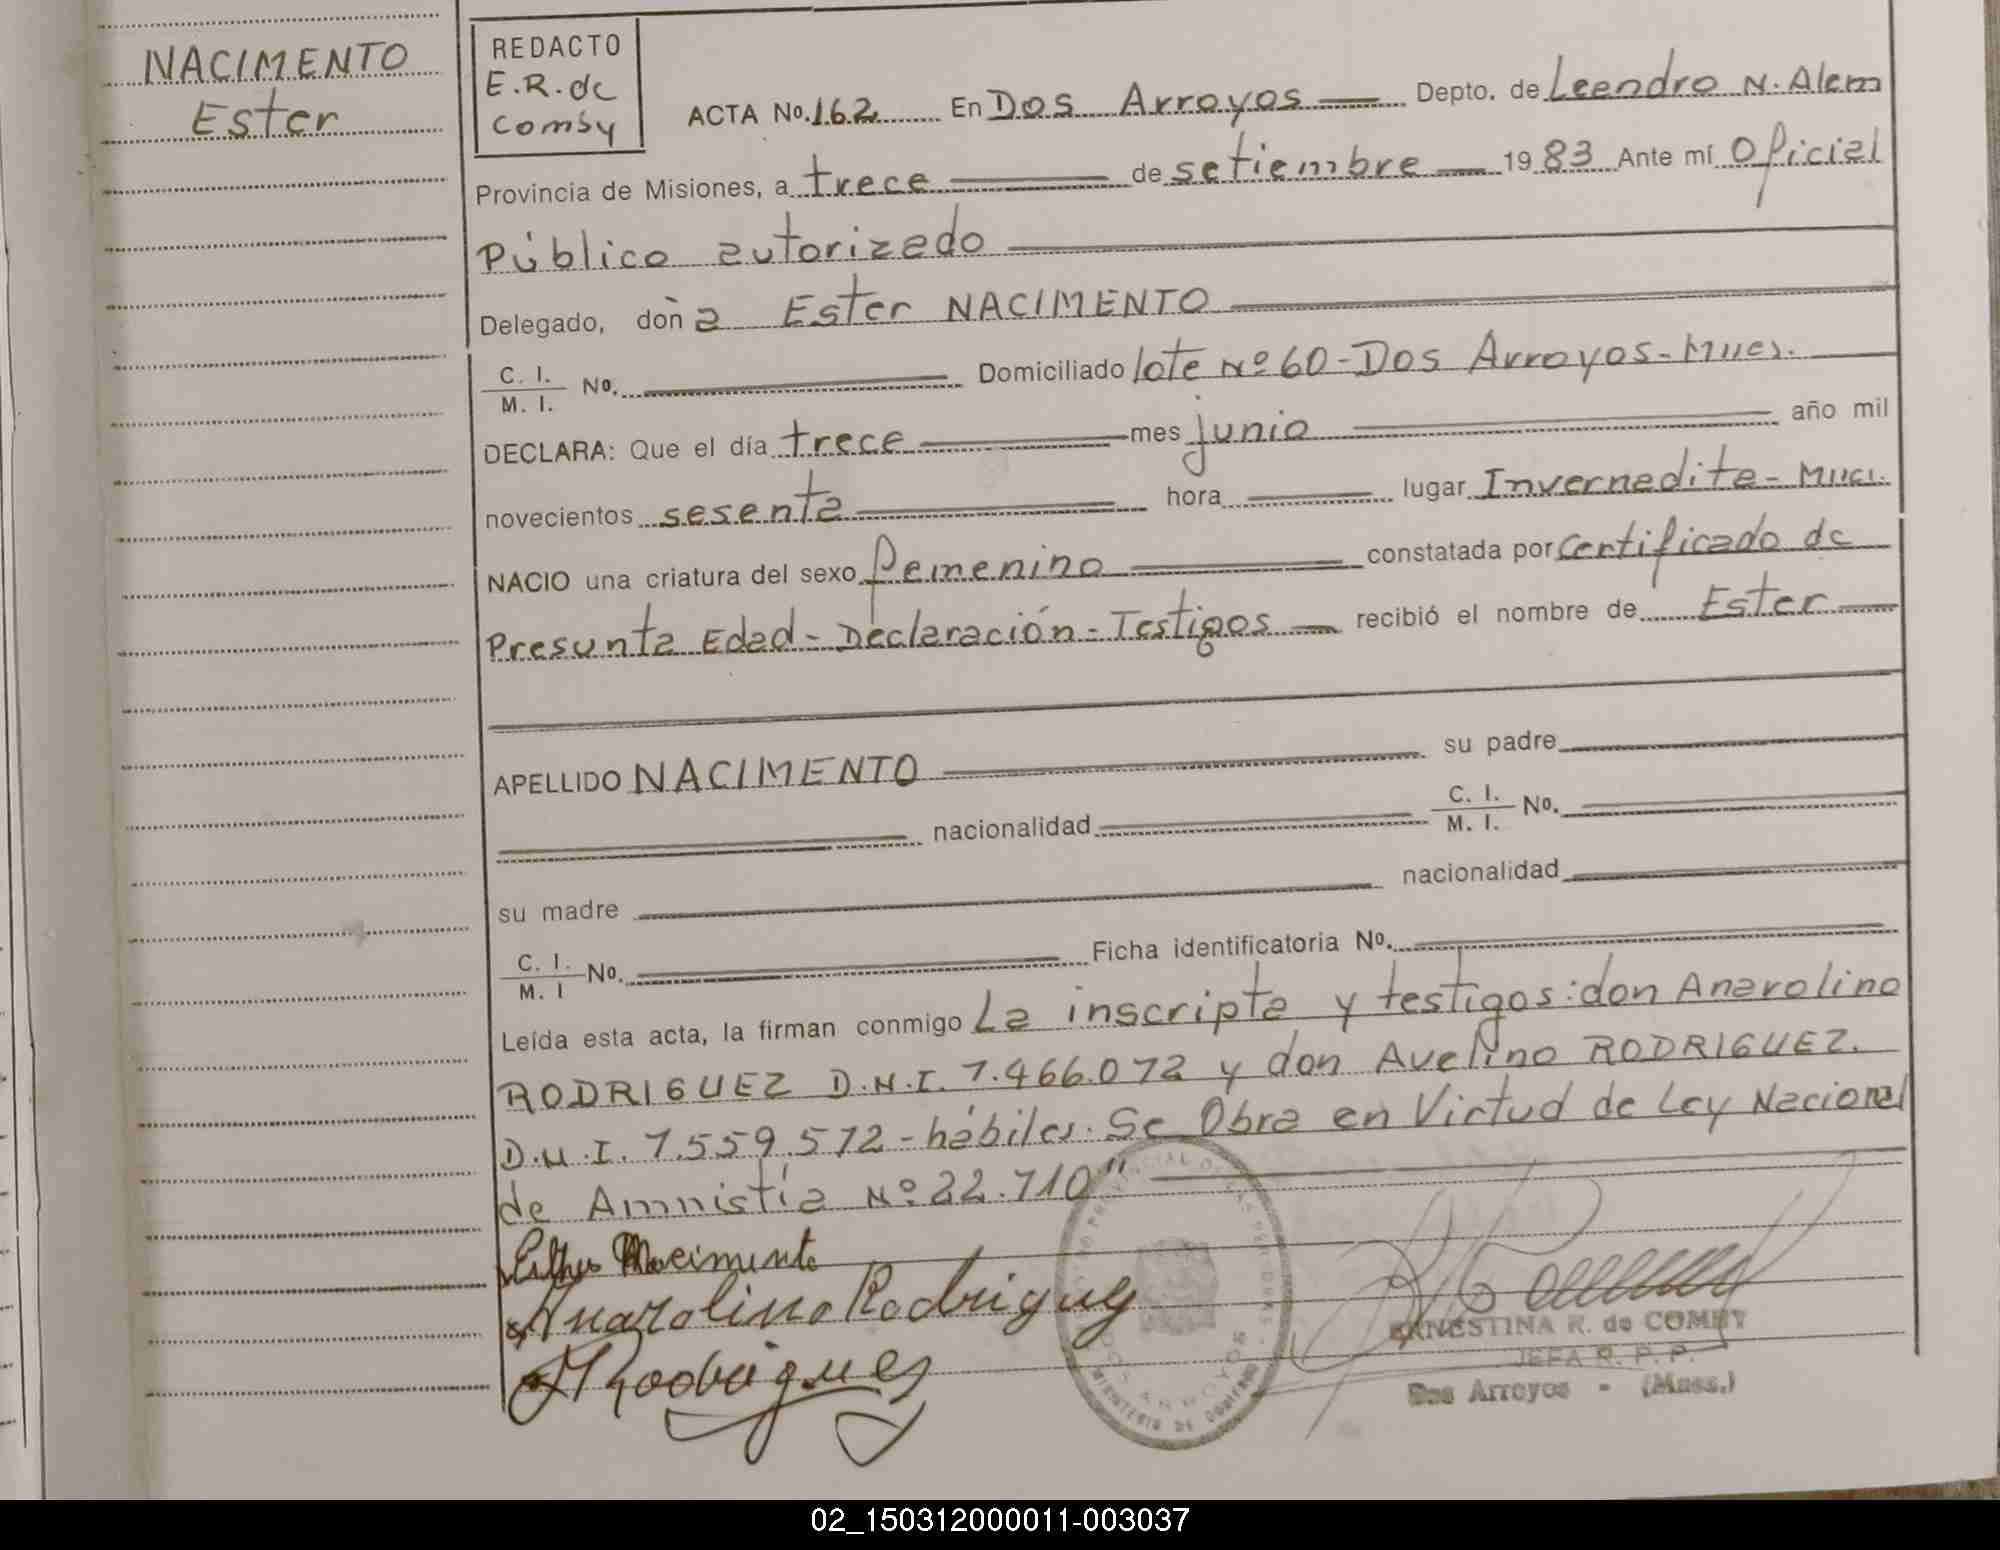 NACIMENTO
Ester
REDACTO
E.R. de
Comby
ACTA No. 162 En Dos Arroyos Depto. de Leandro N. Alem
Provincia de Misiones, a trece de setiembre 1983 Ante mí Oficial
Público autorizado
Delegado, doña Ester NACIMENTO
C. I. / M. I. No. Domiciliado lote Nº 60 - Dos Arroyos - Mnes.
DECLARA: Que el día trece mes junio año mil
novecientos sesenta hora lugar Invernadita - Mnes.
NACIO una criatura del sexo femenino constatada por Certificado de
Presunta Edad - Declaración - Testigos recibió el nombre de Ester
APELLIDO NACIMENTO su padre
nacionalidad C. I. / M. I. No.
su madre nacionalidad
C. I. / M. I No. Ficha identificatoria No.
Leída esta acta, la firman conmigo La inscripta y testigos: don Anarolino
RODRIGUEZ D.N.I. 7.466.072 y don Avelino RODRIGUEZ.
D.N.I. 7.559.572 - hábiles. Se Obra en Virtud de Ley Nacional
de Amnistía Nº 22.710"
Nacimento
Anarolino Rodriguez
A Rodrigues
DOS ARROYOS
MINISTERIO DE GOBIERNO
ERNESTINA R. de COMBY
JEFA R. P. P.
Dos Arroyos - (Mnes.)
02_150312000011-003037